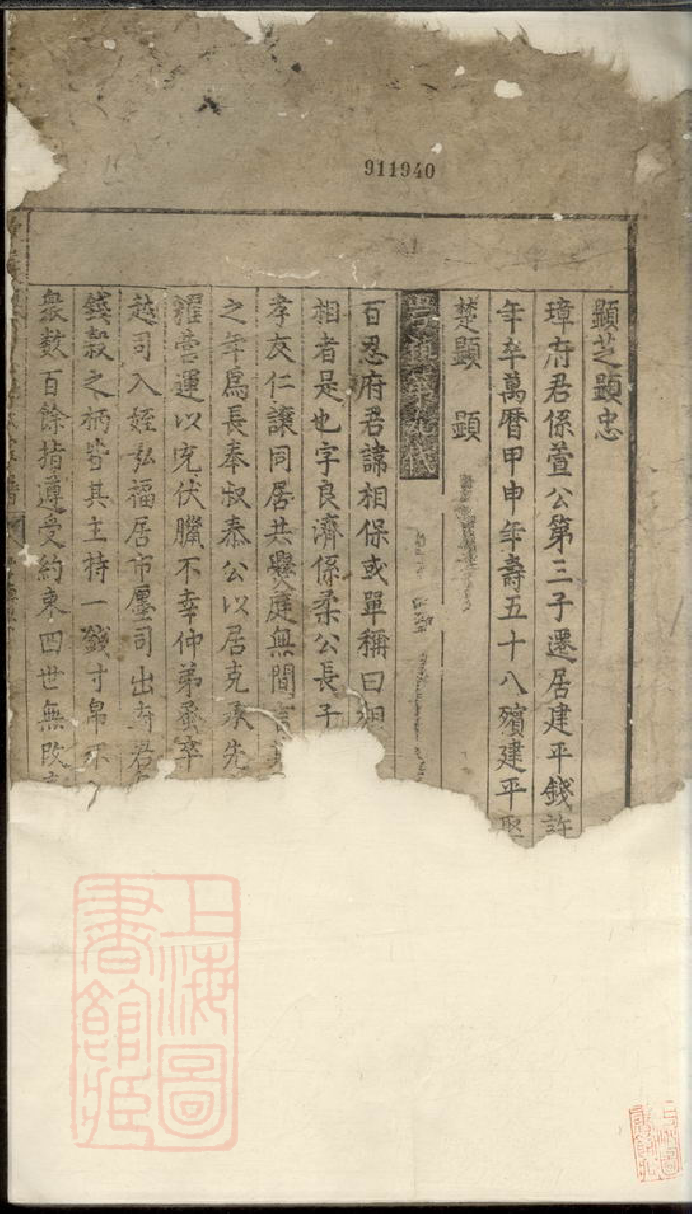 911940
顕芝顕忠
璋府君係萱公第三子遷居建平錢許
年卒萬曆甲申年壽五十八殯建平娶
楚顕　顕
百忍府君諱相保或單稱曰相
相者是也字良濟係柔公長子
孝友仁讓同居共爨庭無間言
之年爲長奉叔泰公以居克承先
糴營運以充伏臘不幸仲弟蚤卒
越司入姪弘福居市廛司出府君
錢穀之柄皆其主持一錢寸帛不
衆數百餘指遵受約束四世無改
上海圖
書館藏